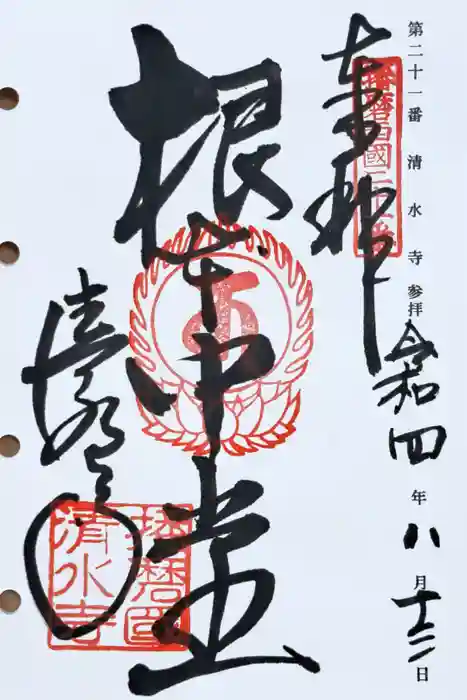 第二十一番 清水寺 参拝 令和四年八月十三日
奉拝
播磨西國
根本中堂
清水寺
播磨國
清水寺